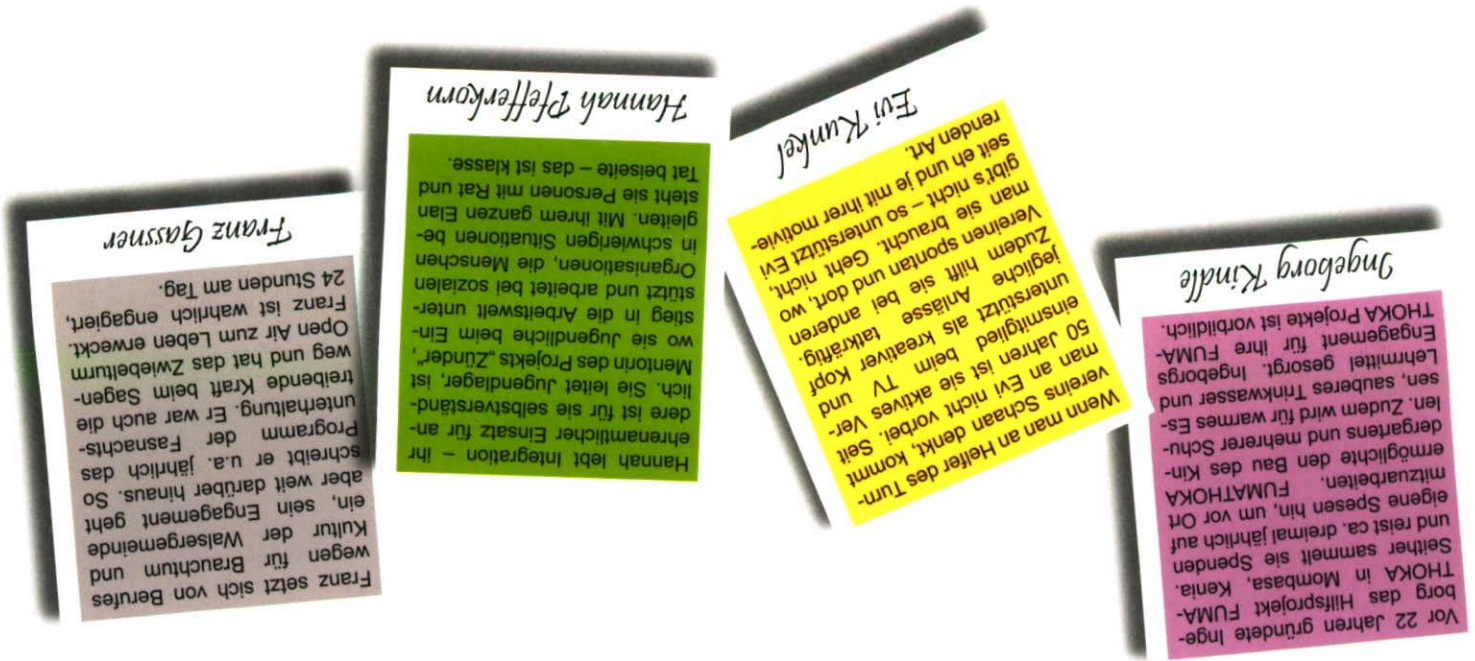 Vor 22 Jahren gründete Inge-
borg das Hilfsprojekt FUMA-
THOKA in Mombasa, Kenia.
Seither sammelt sie Spenden
und reist ca. dreimal jährlich auf
eigene Spesen hin, um vor Ort
mitzuarbeiten. FUMATHOKA
ermöglichte den Bau des Kin-
dergartens und mehrerer Schu-
len. Zudem wird für warmes Es-
sen, sauberes Trinkwasser und
Lehrmittel gesorgt. Ingeborgs
Engagement für ihre FUMA-
THOKA Projekte ist vorbildlich.
Ingeborg Kindle
Wenn man an Helfer des Turn-
vereins Schaan denkt, kommt
man an Evi nicht vorbei. Seit
50 Jahren ist sie aktives Ver-
einsmitglied beim TV und
unterstützt als kreativer Kopf
jegliche Anlässe tatkräftig.
Zudem hilft sie bei anderen
Vereinen spontan und dort, wo
man sie braucht. Geht nicht,
gibt's nicht – so unterstützt Evi
seit eh und je mit ihrer motivie-
renden Art.
Evi Kunkel
Hannah lebt Integration – ihr
ehrenamtlicher Einsatz für an-
dere ist für sie selbstverständ-
lich. Sie leitet Jugendlager, ist
Mentorin des Projekts „Zünder",
wo sie Jugendliche beim Ein-
stieg in die Arbeitswelt unter-
stützt und arbeitet bei sozialen
Organisationen, die Menschen
in schwierigen Situationen be-
gleiten. Mit ihrem ganzen Elan
steht sie Personen mit Rat und
Tat beiseite – das ist klasse.
Hannah Pfefferkorn
Franz setzt sich von Berufes
wegen für Brauchtum und
Kultur der Walsergemeinde
ein, sein Engagement geht
aber weit darüber hinaus. So
schreibt er u.a. jährlich das
Programm der Fasnachts-
unterhaltung. Er war auch die
treibende Kraft beim Sagen-
weg und hat das Zwiebelturm
Open Air zum Leben erweckt.
Franz ist wahrlich engagiert,
24 Stunden am Tag.
Franz Gassner